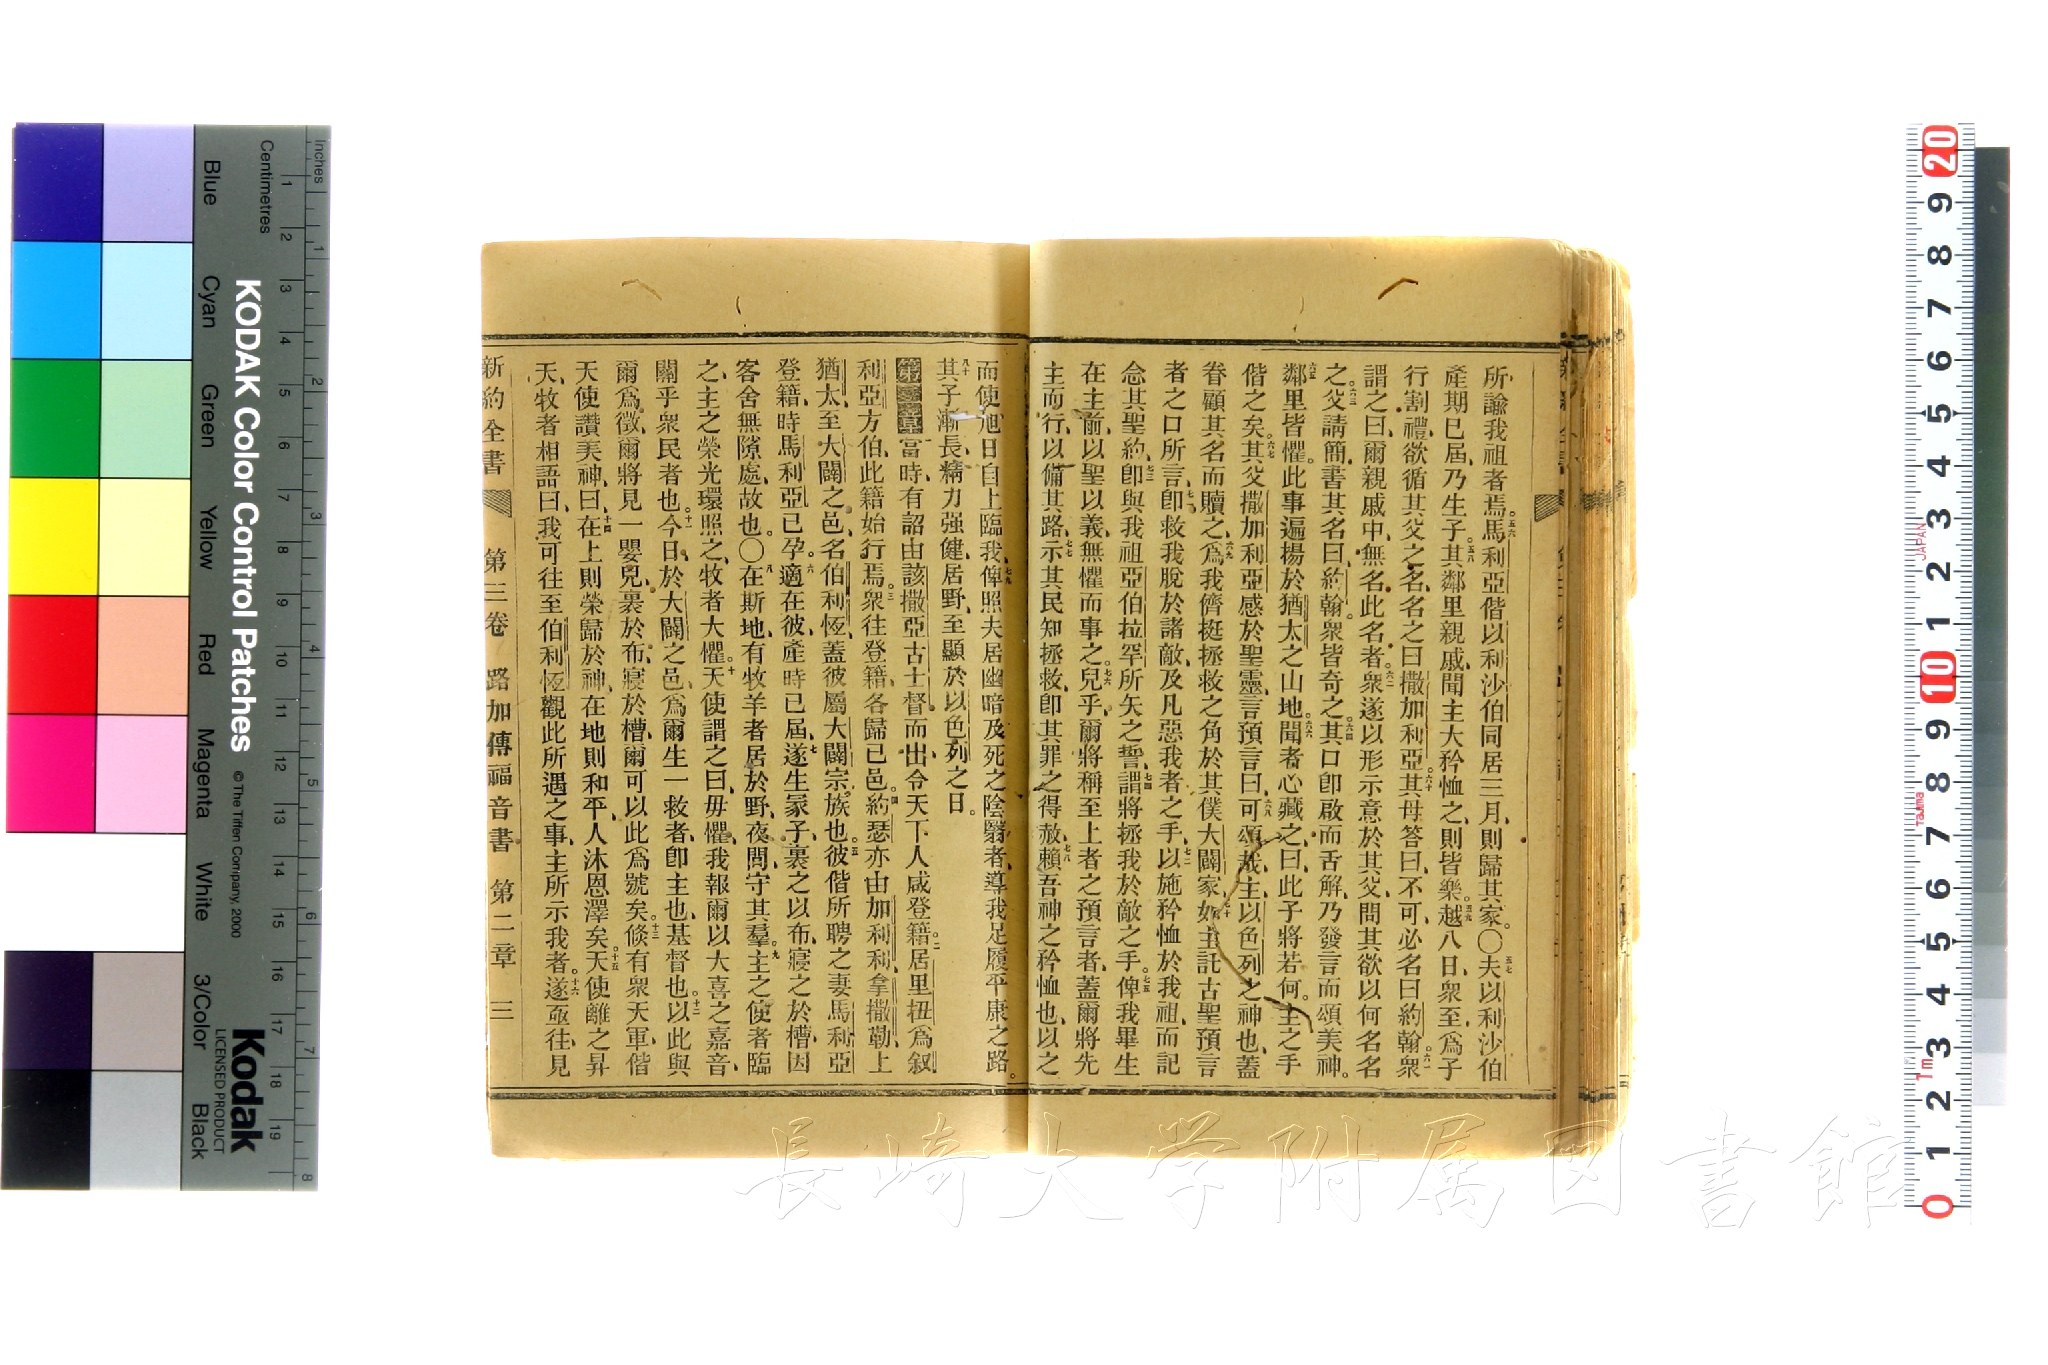 所諭我祖者焉。五六馬利亞偕以利沙伯同居三月、則歸其家。〇五七夫以利沙伯
產期已屆、乃生子。五八其鄰里親戚、聞主大矜恤之、則皆樂。五九越八日、衆至、爲子
行割禮、欲循其父之名、名之曰撒加利亞。六十其母答曰、不可、必名曰約翰。六一衆
謂之曰、爾親戚中、無名此名者。六二衆遂以形示意於其父、問其欲以何名名
之。六三父請簡、書其名曰約翰。衆皆奇之。六四其口卽啟而舌解、乃發言而頌美神。
六五鄰里皆懼。此事遍揚於猶太之山地。六六聞者心藏之、曰、此子將若何。主之手
偕之矣。六七其父撒加利亞感於聖靈、言預言曰、六八可頌哉、主以色列之神也、蓋
眷顧其名而贖之、六九爲我儕挺拯救之角於其僕大闢家、七十如主託古聖預言
者之口所言、七一卽救我脫於諸敵、及凡惡我者之手、七二以施矜恤於我祖、而記
念其聖約、七三卽與我祖亞伯拉罕所矢之誓、七四謂將拯我於敵之手。七五俾我畢生
在主前、以聖以義、無懼而事之。七六兒乎、爾將稱至上者之預言者、蓋爾將先
主而行、以備其路、七七示其民知拯救、卽其罪之得赦、七八賴吾神之矜恤也、以之
而使旭日自上臨我、七九俾照夫居幽暗及死之陰翳者、導我足履平康之路。
八十其子漸長、精力强健、居野、至顯於以色列之日。
第二章 當時、有詔由該撒亞古士督而出、令天下人咸登籍。二居里扭爲叙
利亞方伯、此籍始行焉。三衆往登籍、各歸已邑。四約瑟亦由加利利、拿撒勒、上
猶太、至大闢之邑、名伯利恆、蓋彼屬大闢宗族也。五彼偕所聘之妻馬利亞
登籍、時馬利亞已孕。六適在彼、產時已屆、七遂生冢子、裹之以布、寢之於槽、因
客舍無隙處故也。〇八在斯地、有牧羊者居於野、夜間守其羣。九主之使者臨
之、主之榮光環照之、牧者大懼。十天使謂之曰、毋懼、我報爾以大喜之嘉音、
關乎衆民者也。十一今日、於大闢之邑、爲爾生一救者、卽主也、基督也。十二以此與
爾爲徵、爾將見一嬰兒、裹於布、寢於槽、爾可以此爲號矣。十三倏有衆天軍、偕
天使讚美神、曰、十四在上則榮歸於神、在地則和平、人沐恩澤矣。十五天使離之昇
天、牧者相語曰、我可往至伯利恆、觀此所遇之事、主所示我者。十六遂亟往、見
新約全書 第三卷 路加傳福音書 第二章 三
KODAK Color Control Patches
© The Tiffen Company, 2000
Kodak
LICENSED PRODUCT
Inches
Centimetres
Blue Cyan Green Yellow Red Magenta White 3/Color Black
1 2 3 4 5 6 7 8 9 10 11 12 13 14 15 16 17 18 19
1 2 3 4 5 6 7 8
20 9 8 7 6 5 4 3 2 1 10 9 8 7 6 5 4 3 2 1 0
JAPAN
Tajima
1m
長崎大学附属図書館